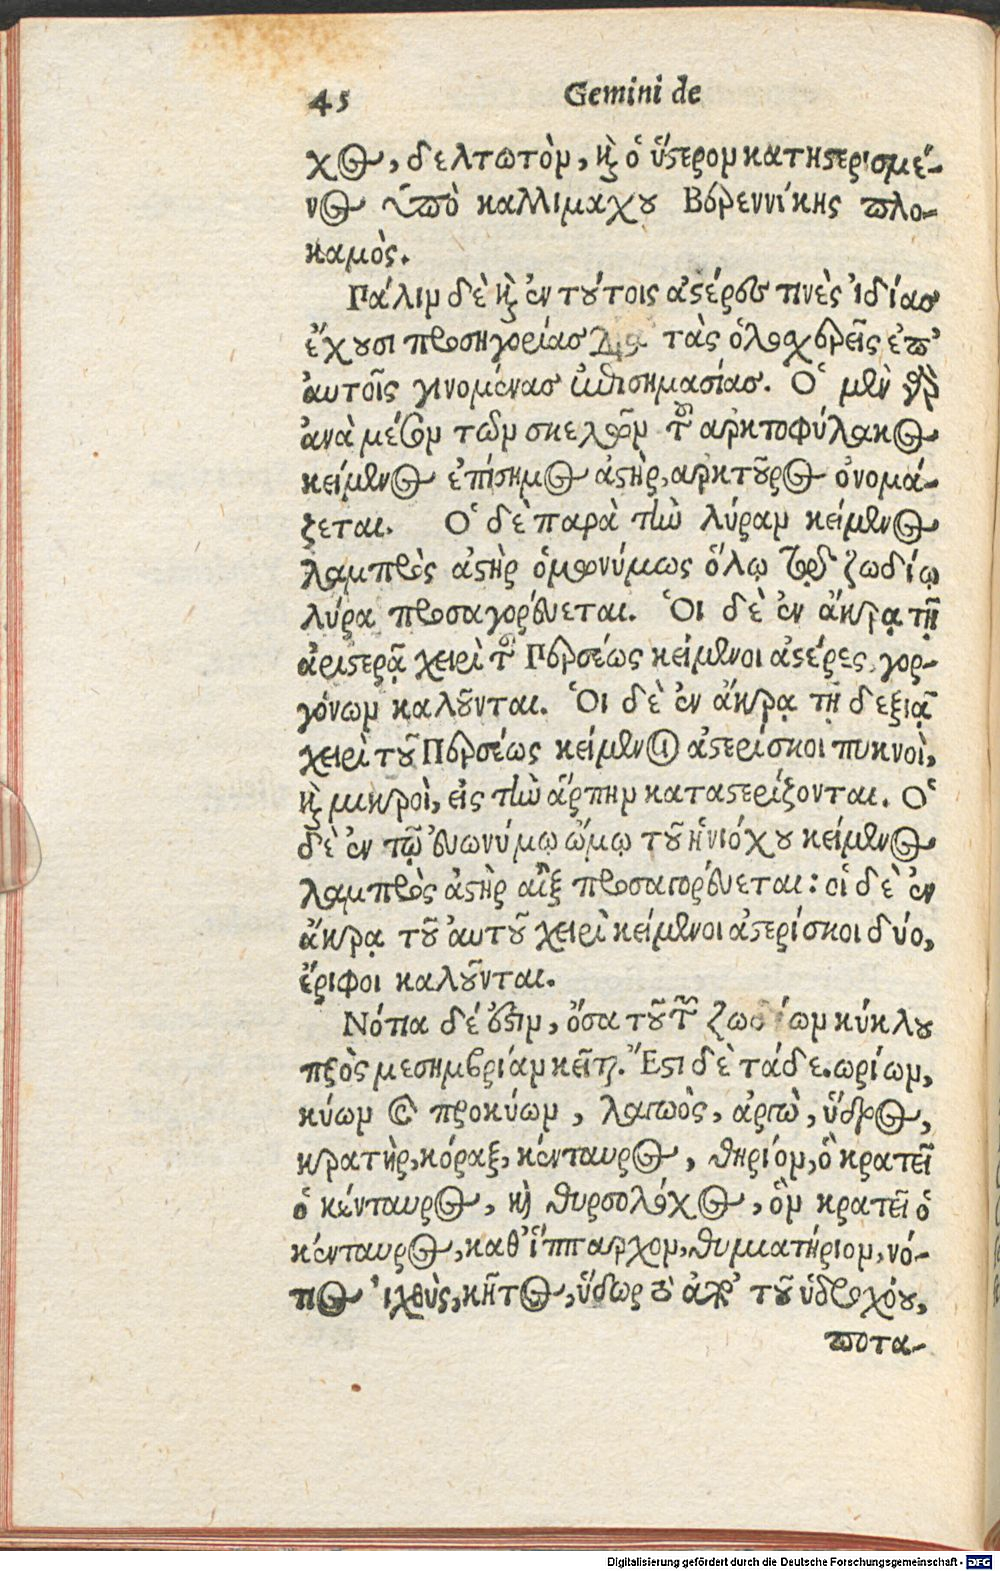 45 Gemini de
χος, δελτωτὸν, καὶ ὁ ὕστερον κατηστερισμέ-
νος ὑπὸ καλλιμάχου Βερεννίκης πλο-
καμὸς.
Πάλιν δὲ καὶ ἐν τούτοις ἀστέρες τινὲς ἰδίας
ἔχουσι προσηγορίας διὰ τὰς ὁλοσχερεῖς ἐπ'
αὐτοῖς γινομένας ἐπισημασίας. Ὁ μὲν γὰρ
ἀνὰ μέσον τῶν σκελῶν τοῦ ἀρκτοφύλακος
κείμενος ἐπίσημος ἀστὴρ, ἀρκτοῦρος ὀνομά-
ζεται. Ὁ δὲ παρὰ τὴν λύραν κείμενος
λαμπρὸς ἀστὴρ ὁμωνύμως ὅλῳ τῷ ζωδίῳ
λύρα προσαγορεύεται. Οἱ δὲ ἐν ἄκρᾳ τῇ
ἀριστερᾷ χειρὶ τοῦ Περσέως κείμενοι ἀστέρες, γορ-
γόνων καλοῦνται. Οἱ δὲ ἐν ἄκρᾳ τῇ δεξιᾷ
χειρὶ τοῦ Περσέως κείμενοι ἀστερίσκοι πυκνοὶ,
καὶ μικροὶ, εἰς τὴν ἅρπην καταστερίζονται. Ὁ
δὲ ἐν τῷ εὐωνύμῳ ὤμῳ τοῦ ἡνιόχου κείμενος
λαμπρὸς ἀστὴρ αἲξ προσαγορεύεται: οἱ δὲ ἐν
ἄκρᾳ τοῦ αὐτοῦ χειρὶ κείμενοι ἀστερίσκοι δύο,
ἔριφοι καλοῦνται.
Νότια δέ ἐστιν, ὅσα τοῦ τῶν ζωδίων κύκλου
πρὸς μεσημβρίαν κεῖται. Ἔστι δὲ τάδε. ὠρίων,
κύων καὶ προκύων, λαγωὸς, ἀργὼ, ὕδρος,
κρατὴρ, κόραξ, κένταυρος, θηρίον, ὃ κρατεῖ
ὁ κένταυρος, καὶ θυρσολόχος, ὃν κρατεῖ ὁ
κένταυρος, καθ' ἵππαρχον, θυμιατήριον, νό-
τιος ἰχθὺς, κῆτος, ὕδωρ τὸ ἀπὸ τοῦ ὑδροχόου,
ποτα-
Digitalisierung gefördert durch die Deutsche Forschungsgemeinschaft - DFG